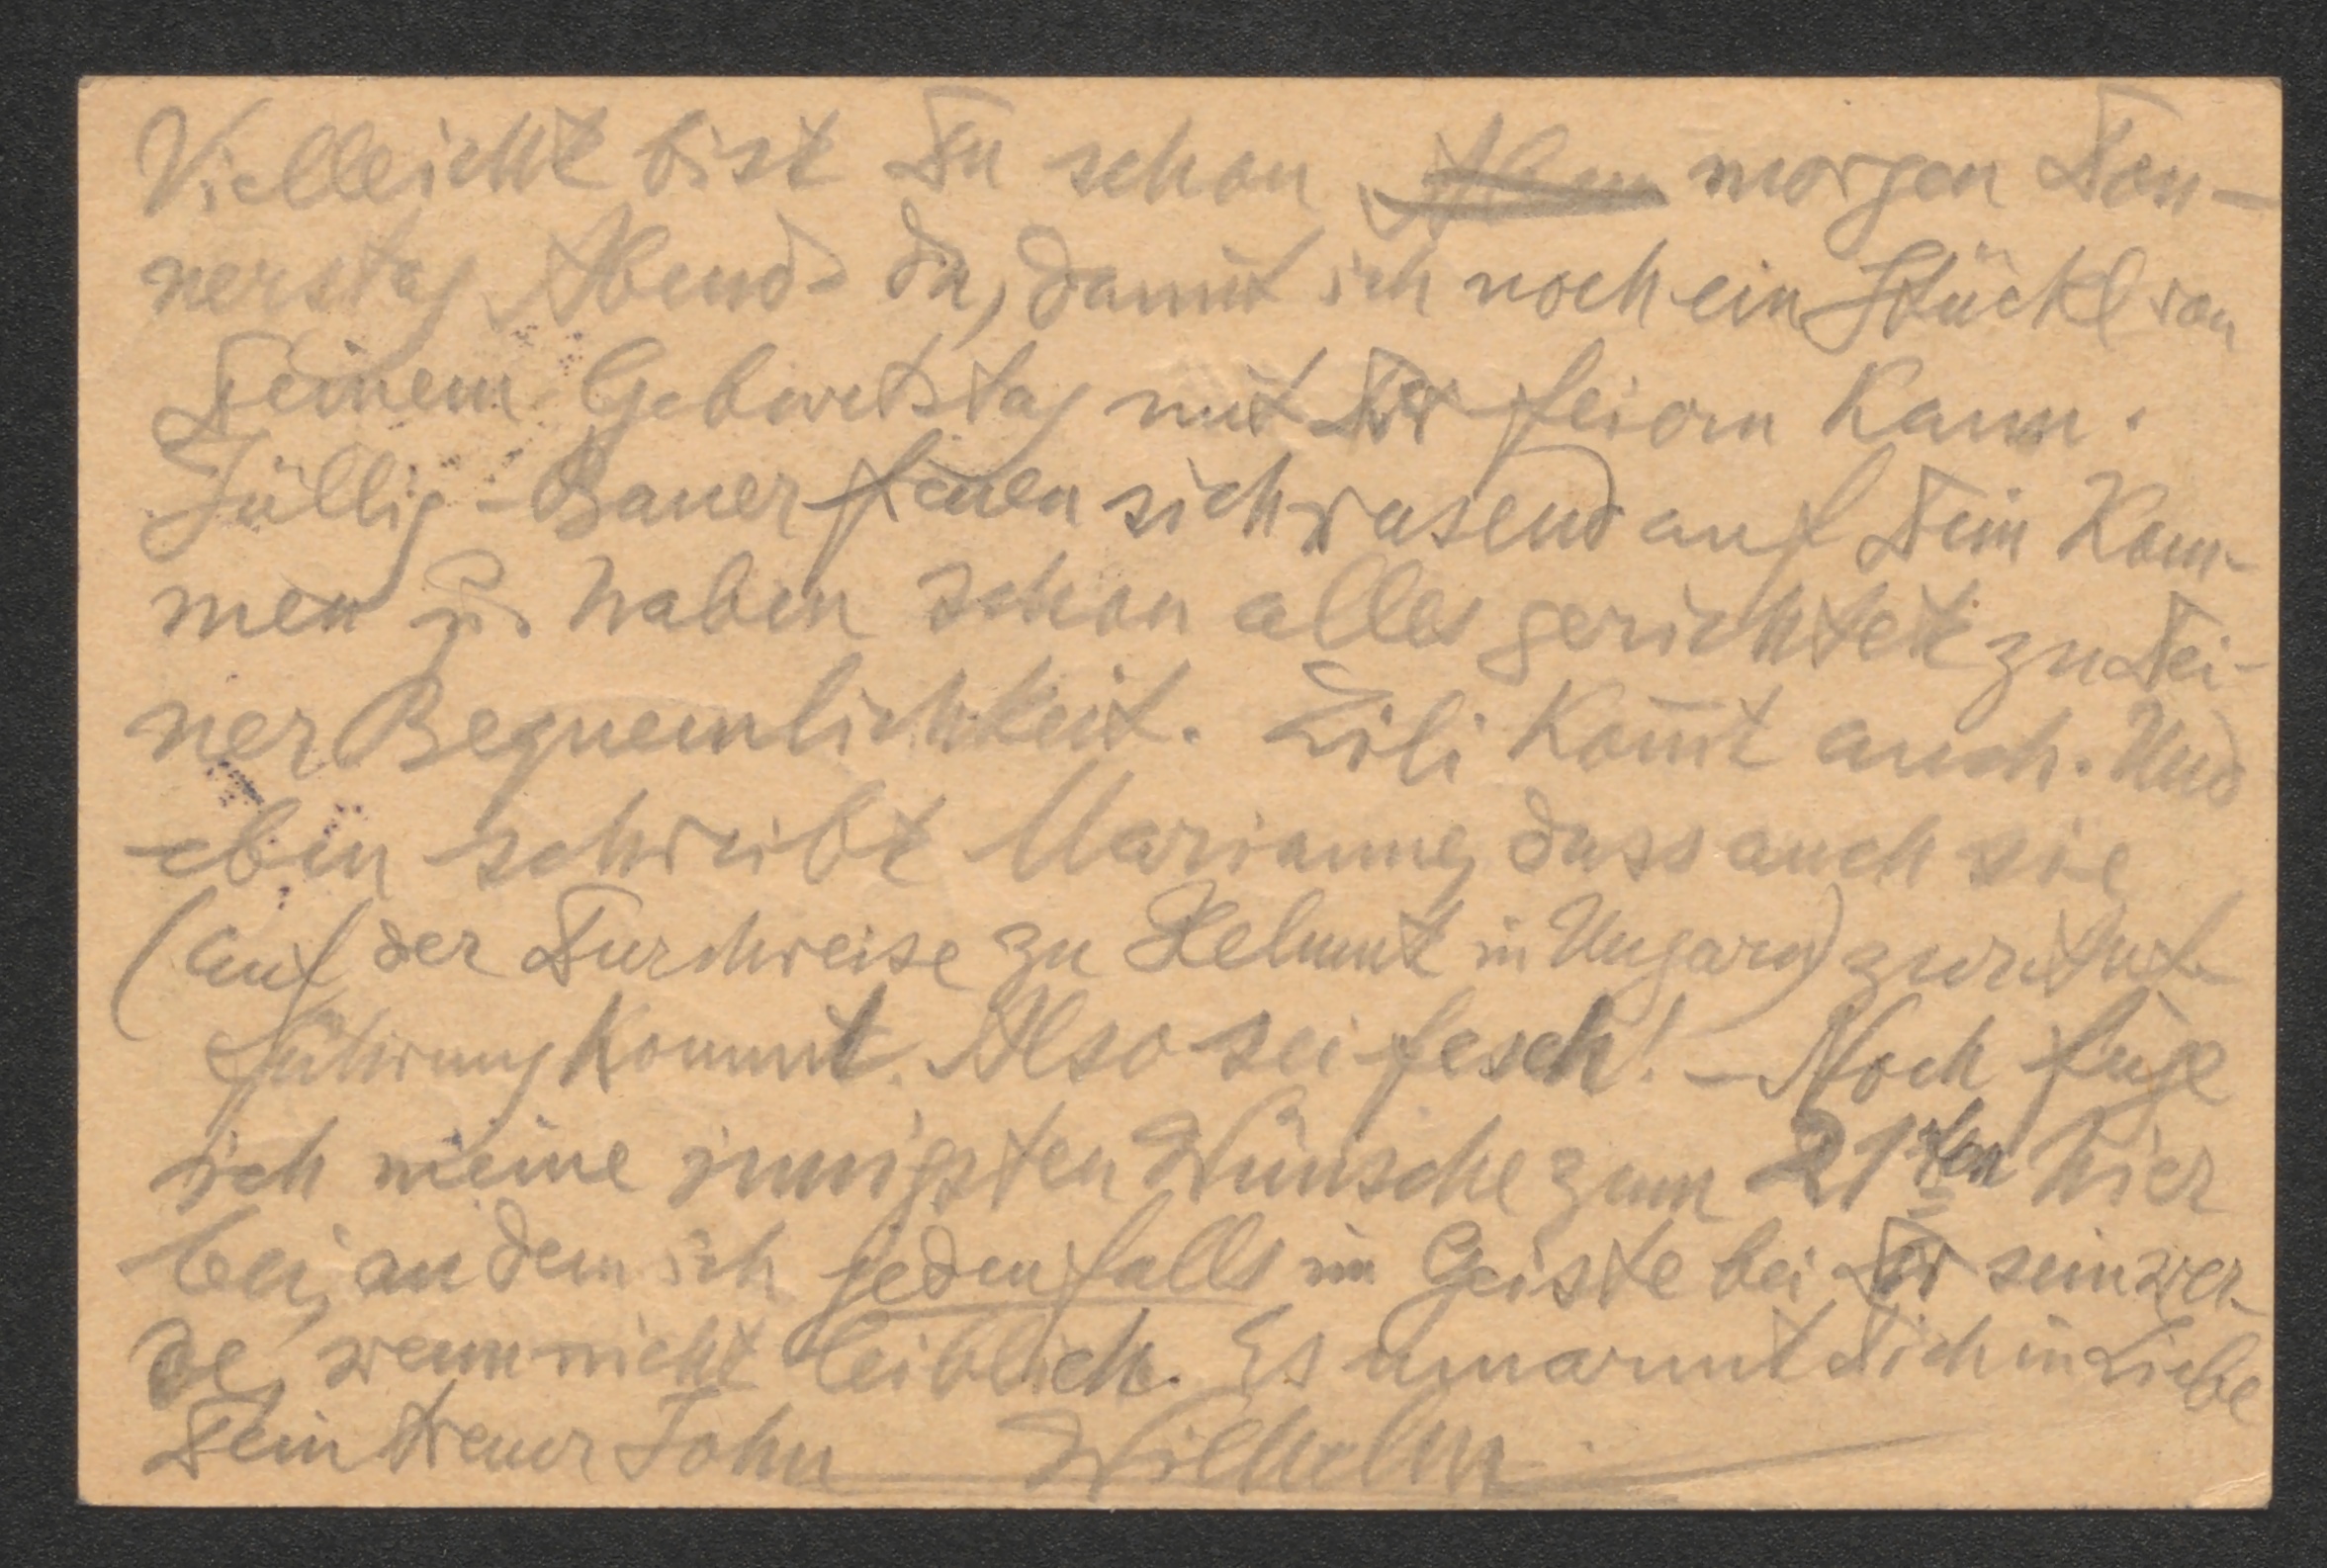 Vielleicht bist Du schon morgen Don-
nerstag Abend da, damit ich noch ein Stückl von
Deinem Geburtstag mit Dir feiern kann.
Jüllig-Bauer freuen sich rasend auf Dein Kom-
men u. haben schon alles gerichtet zu Dei-
ner Bequemlichkeit. Lili kom̄t auch. Und
eben schreibt Marianne, dass auch sie
(auf der Durchreise zu Helmut in Ungarn) zur Auf-
führung kommt. Also sei fesch! – Noch füge
ich meine innigsten Wünsche zum 21ten hier
bei, an dem ich jedenfalls im Geiste bei Dir sein wer-
de, wenn nicht leiblich. Es umarmt Dich in Liebe
Dein treuer John Wilhelm